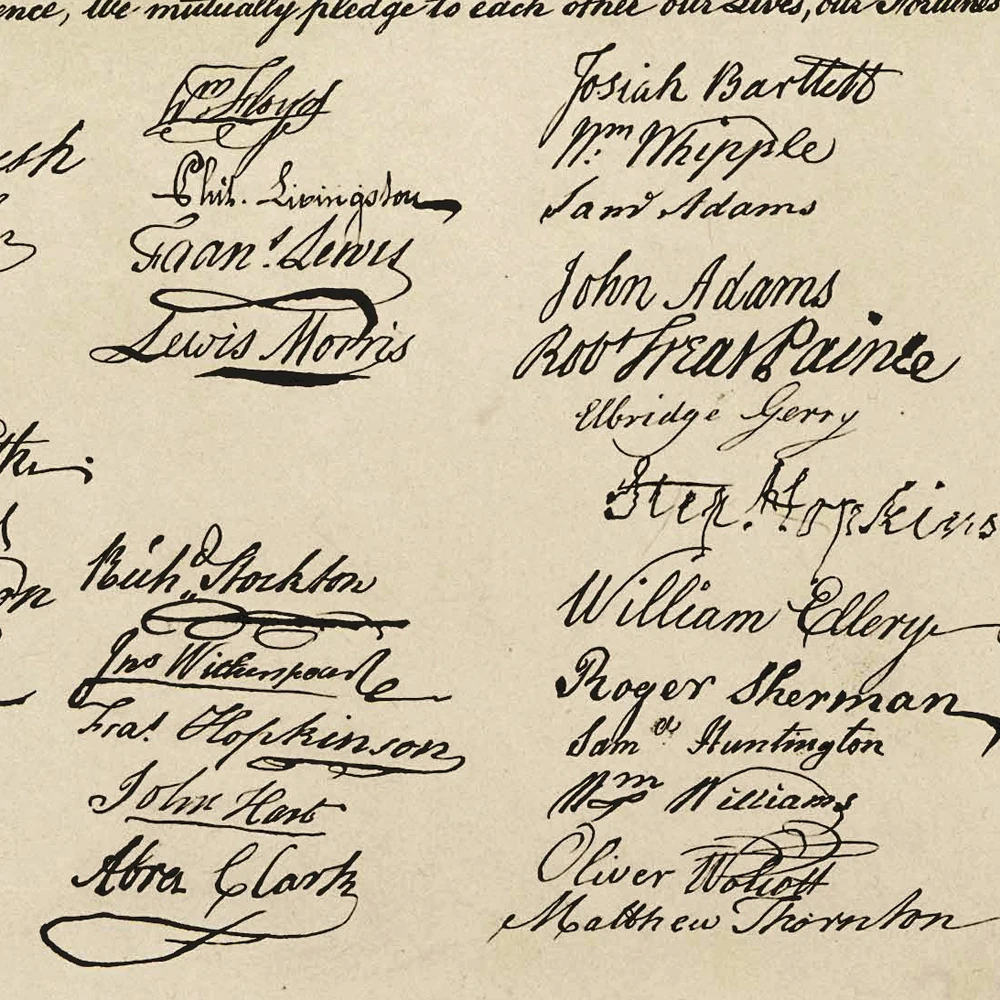 ence, we mutually pledge to each other our Lives, our Fortunes
Wm Floyd
Phil. Livingston
Frans. Lewis
Lewis Morris
Richd. Stockton
Jno Witherspoon
Fras. Hopkinson
John Hart
Abra Clark
Josiah Bartlett
Wm. Whipple
Saml Adams
John Adams
Robt Treat Paine
Elbridge Gerry
Step. Hopkins
William Ellery
Roger Sherman
Samel Huntington
Wm Williams
Oliver Wolcott
Matthew Thornton